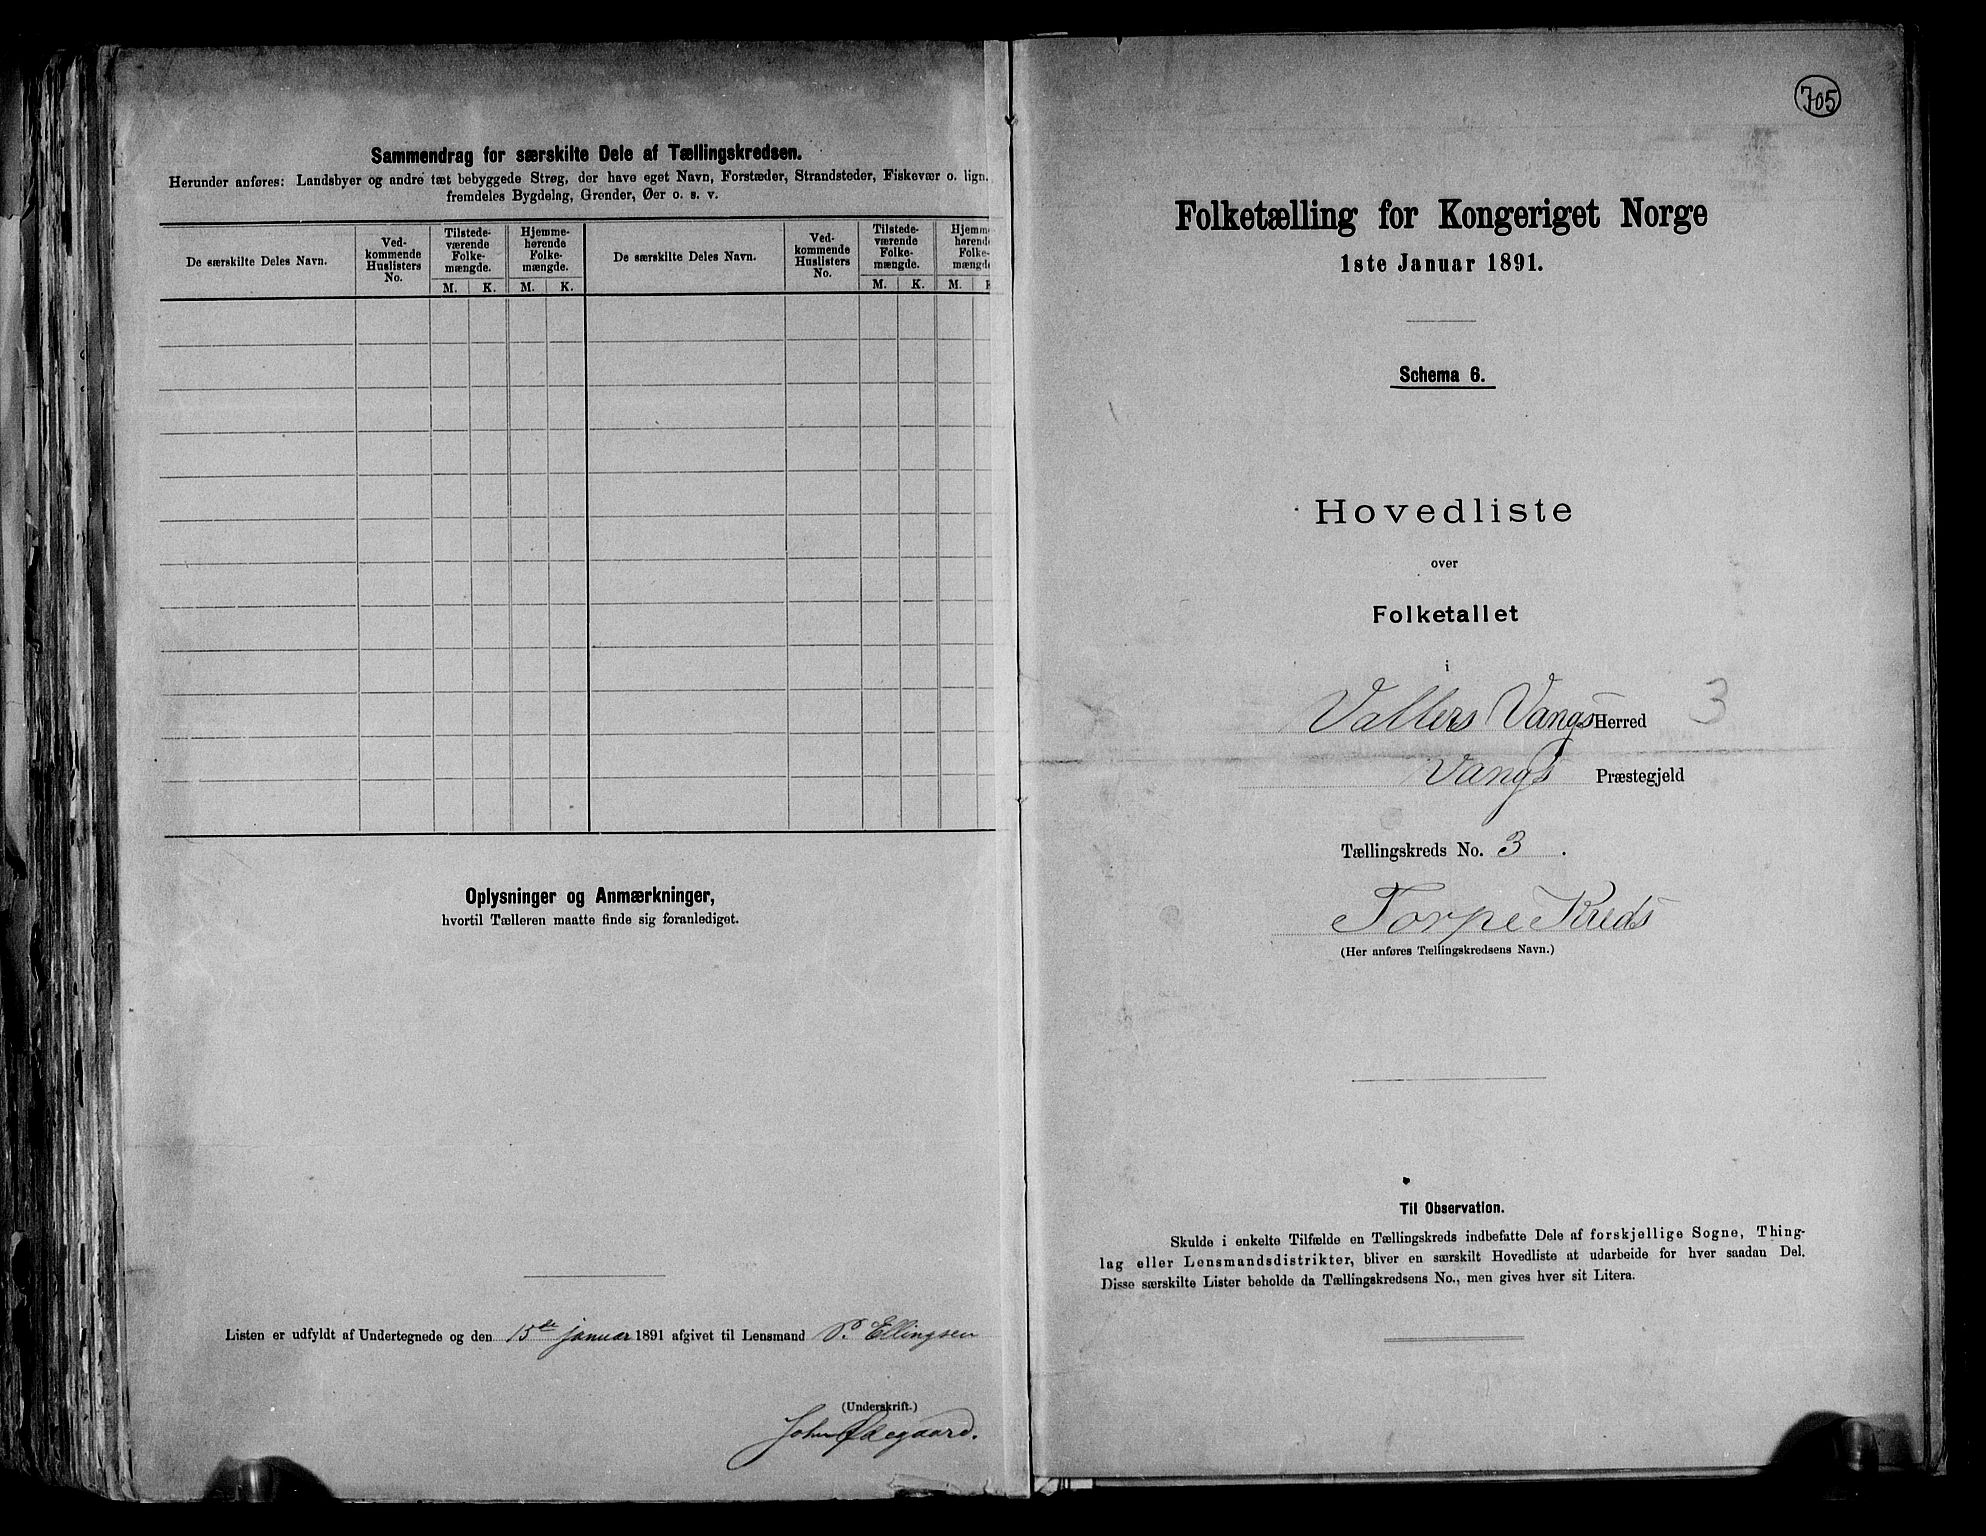 Sammendrag for særskilte Dele af Tællingskredsen.
Herunder anføres: Landsbyer og andre tæt bebyggede Strøg, der have eget Navn, Forstæder, Strandsteder, Fiskevær o. lign.,
fremdeles Bygdelag, Grender, Øer o. s. v.
De særskilte Deles Navn.
Ved-
kommende
Huslisters
No.
Tilstede-
værende
Folke-
mængde.
Hjemme-
hørende
Folke-
mængde.
M. K. M. K.
De særskilte Deles Navn.
Ved-
kommende
Huslisters
No.
Tilstede-
værende
Folke-
mængde.
Hjemme-
hørende
Folke-
mængde
M. K. M. K
Oplysninger og Anmærkninger,
hvortil Tælleren maatte finde sig foranlediget.
Listen er udfyldt af Undertegnede og den 15de januar 1891 afgivet til Lensmand P. Ellingsen
(Underskrift.)
John Ødegaard.
705
Folketælling for Kongeriget Norge
1ste Januar 1891.
Schema 6.
Hovedliste
over
Folketallet
i
Valders Vangs Herred 3
Vangs Præstegjeld
Tællingskreds No. 3.
Torpe Kreds
(Her anføres Tællingskredsens Navn.)
Til Observation.
Skulde i enkelte Tilfælde en Tællingskreds indbefatte Dele af forskjellige Sogne, Thing-
lag eller Lensmandsdistrikter, bliver en særskilt Hovedliste at udarbeide for hver saadan Del.
Disse særskilte Lister beholde da Tællingskredsens No., men gives hver sit Litera.